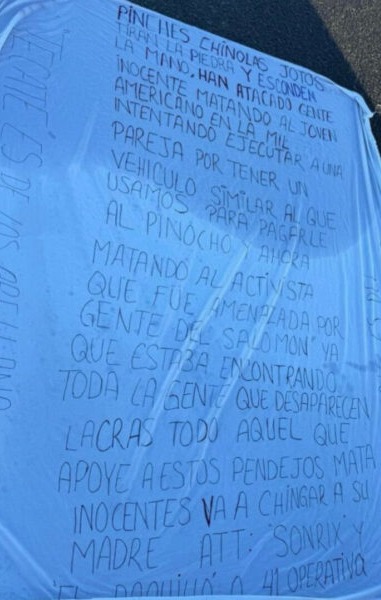 PINCHES CHINOLAS JOTOS
TIRAN LA PIEDRA Y ESCONDEN
LA MANO, HAN ATACADO GENTE
INOCENTE MATANDO AL JOVEN
AMERICANO EN LA MIL
INTENTANDO EJECUTAR A UNA
PAREJA POR TENER UN
VEHICULO SIMILAR AL QUE
USAMOS PARA PAGARLE
AL PINOCHO Y AHORA
MATANDO AL ACTIVISTA
QUE FUE AMENAZADA POR
GENTE DEL SALOMON" YA
QUE ESTABA ENCONTRANDO
TODA LA GENTE QUE DESAPARECEN
LACRAS TODO AQUEL QUE
APOYE A ESTOS PENDEJOS MATA
INOCENTES VA A CHINGAR A SU
MADRE ATT: "SONRIX" Y
"EL A 41 OPERATIVA
TECATE ES DE LOS ARELLANO